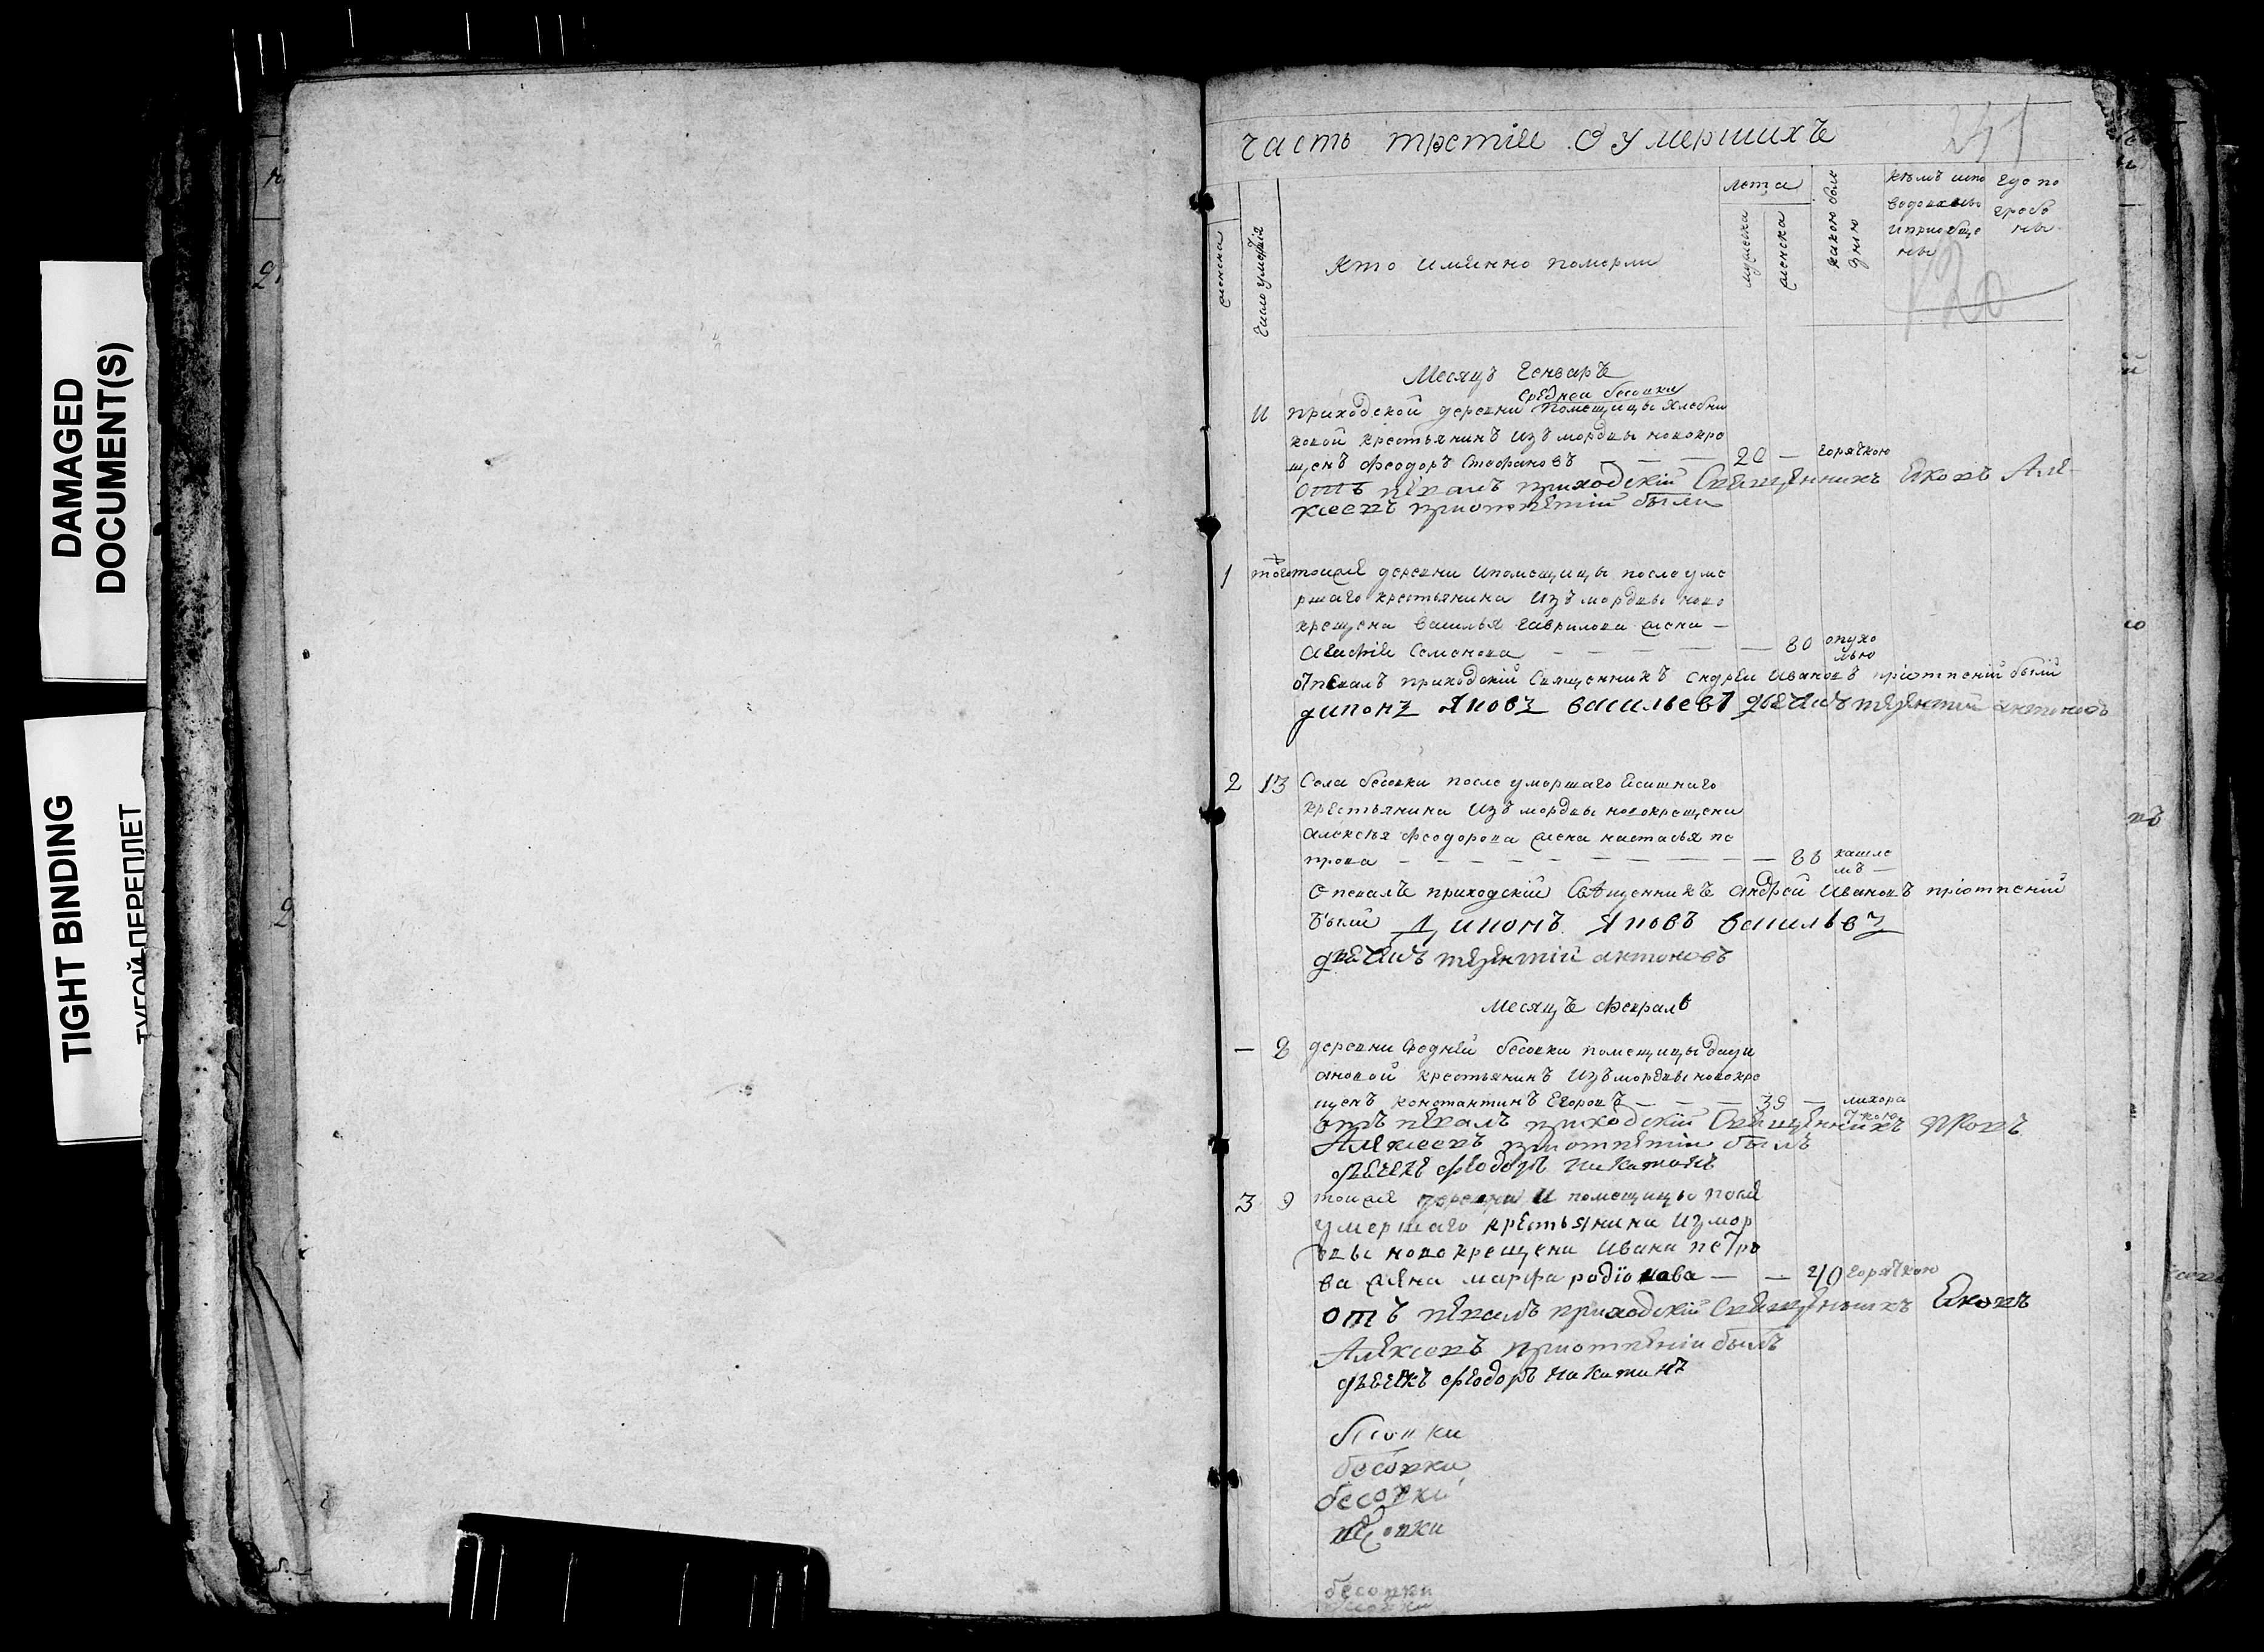 DAMAGED
DOCUMENT(S)
TIGHT BINDING
ТУГОЙ ПЕРЕПЛЕТ
часть третiя О умершихъ
241
женска
Число умертiя
Кто имянно померли
лета
мужеска
женска
какою боле
знию
кемъ испо
ведованы
и приобще
ны
где по
гребе
ны
120
Месяцъ Генварь
средней бесовки
11 приходской деревни помещицы Хлебни
ковой крестьянинъ изъ мордвы новокре
щенъ Феодоръ Стефановъ — — — 20 — горячкою
отъ певалъ приходскiй Священникъ Яковъ Але
ксеевъ приотпетiй были
1 того тоиже деревни ипомещицы после уме
ршаго крестьянина изъ мордвы ново
крещена василья гаврилова жена —
Семенова — — — — — 80 опухо
лью
отпевалъ приходскiй Священникъ андрей Ивановъ приотпенiй былй
дияконъ Яковъ васильевъ дьячикъ терентий антоновъ
2 13 Села бесовки после умершаго
крестьянина изъ мордвы новокрещена
алексея Феодорова жена настасья пе
трова — — — — — — — — 88 кашле
мъ —
опевалъ приходскiй Священникъ андрей Ивановъ приотпенiй
былй Дияконъ Яковъ васильвъ
дьячикъ терентiй антоновъ
Месяцъ Февраль
— 8 деревни средней бесовки помещицы
ановой крестьянинъ изъ мордвы новокре
щенъ константинъ Егоровъ — — — 39 — лихора
ткою
отъ певалъ приходскiй Священникъ Яковъ
Алексеевъ приотпетiи былъ
дьячекъ Феодоръ Никитинъ
3 9 тоиже деревни и помещицы после
умершаго крестьянина изъ мор
двы новокрещена Ивана петро
ва жена марфа радiонова — — 40 горячкою
отъ певалъ приходскiй Священникъ Яковъ
Алексеевъ приотпенiи былъ
дьячекъ Феодоръ Никитинъ
бесовки
бесовки
бесовки
бесовки
бесовки